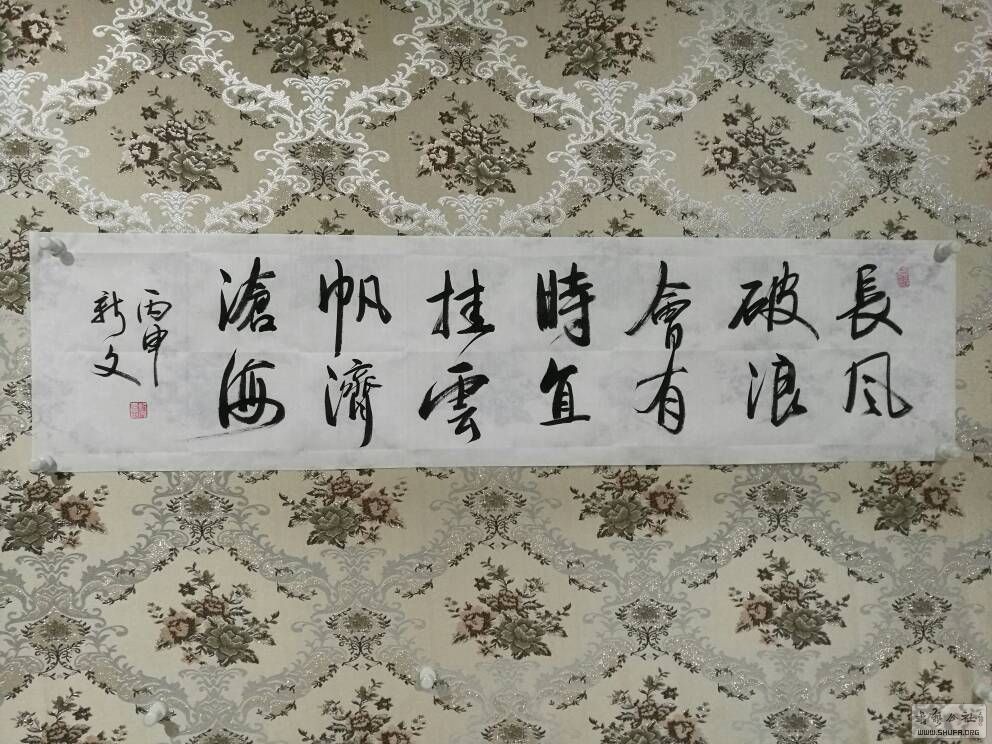 長風
破浪
會有
時直
挂雲
帆濟
滄海
丙申
新文
WWW.SHUFA.ORG